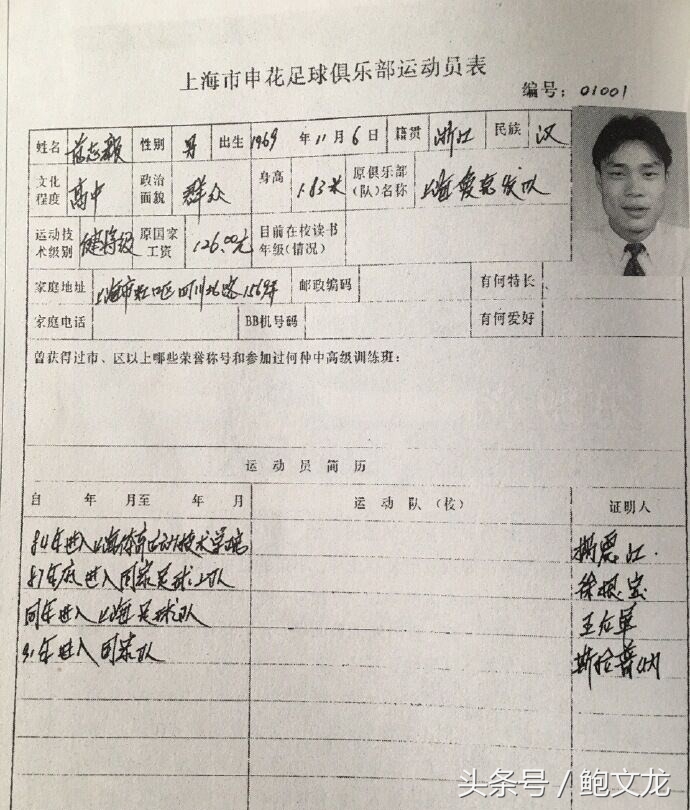 上海市申花足球俱乐部运动员表
编号：01001
姓名 范志毅 性别 男 出生 1969 年 11 月 6 日 籍贯 浙江 民族 汉
文化程度 高中 政治面貌 群众 身高 1.83米 原俱乐部(队)名称 上海 队
运动技术级别 健将级 原国家工资 126.00元 目前在校读书年级(情况)
家庭地址 上海市虹口区四川北路1569弄 邮政编码 有何特长
家庭电话 BB机号码 有何爱好
曾获得过市、区以上哪些荣誉称号和参加过何种中高级训练班：
运动员简历
自 年 月至 年 月 运动队(校) 证明人
84年进入上海体育运动技术学院
87年底进入国家足球二队 徐根宝
同年进入上海足球队 王后军
91年进入国家队 施拉普纳
头条号／鲍文龙